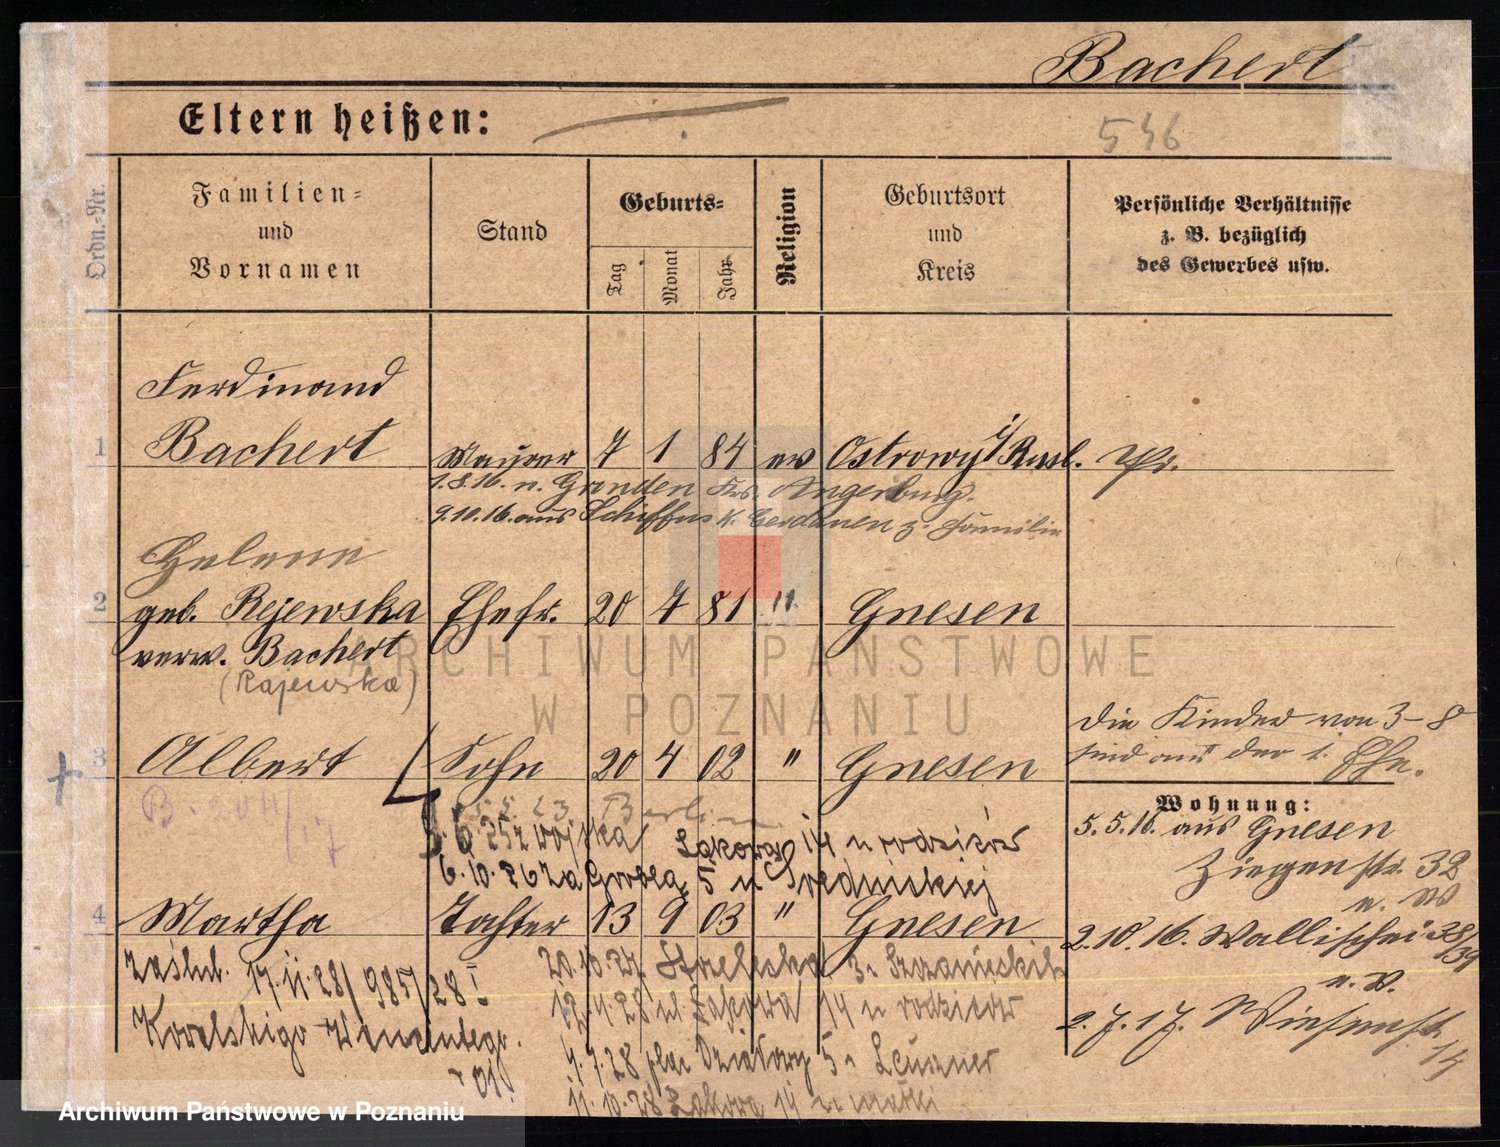 Bachert
Eltern heißen:
546
Ordn.-Nr.
Familien-
und
Vornamen
Stand
Geburts-
Tag
Monat
Jahr
Religion
Geburtsort
und
Kreis
Persönliche Verhältnisse
z. B. bezüglich
des Gewerbes usw.
Ferdinand
1 Bachert Maurer 7 1 84 ev Ostrowy i/Russl. Pr.
1.8.16. n. Krs. Angerburg.
9.10.16. aus Schiffus K. Gerdauen z. Familie
Helene
2 geb. Rejewska Ehefr. 20 7 81 " Gnesen
verw. Bachert
(Rajewska)
Die Kinder von 3-8
sind aus der 1. Ehe.
3 Albert Sohn 20 4 02 " Gnesen
B. 2011/17
23 Berlin
Wohnung:
5.5.16. aus Gnesen
Ziegenstr. 32
z wojska Łąkowa 14 u rodziców
6.10.26 za Grobla 5 u Średnickiej
n. W
4 Martha Tochter 13 9 03 " Gnesen
2.10.16. Wallischei 38/39
zaślub. 17.11.28/985/28 I
20.10.27 Strzelecka 3 u
n. v.
12.4.28 ul. Łąkowa 14 u rodziców
2.7.17. Wiesenstr. 14
Kowalskiego
4.7.28 plac Działowy 5 u
11.10.28 Łąkowa 14 u matki
ARCHIWUM PAŃSTWOWE
W POZNANIU
Archiwum Państwowe w Poznaniu